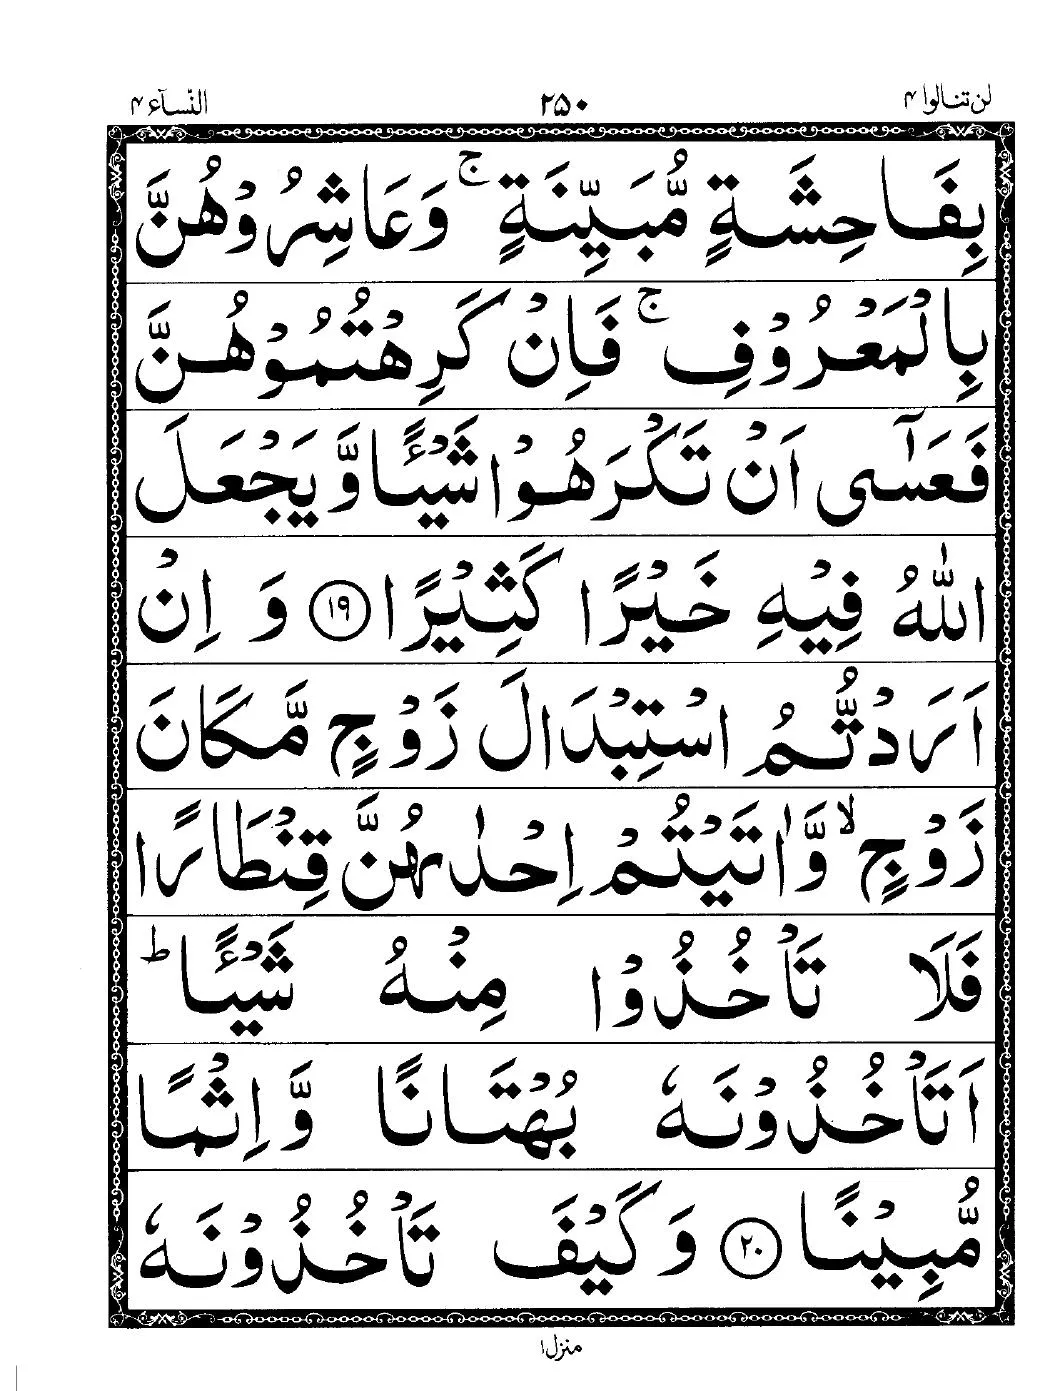 لن تنالوا ۴ ۲۵۰ النّسآء ۴
بِفَاحِشَةٍ مُّبَيِّنَةٍ ۚ وَعَاشِرُوْهُنَّ
بِالْمَعْرُوْفِ ۚ فَاِنْ كَرِهْتُمُوْهُنَّ
فَعَسٰٓى اَنْ تَكْرَهُوْا شَيْـًٔا وَّ يَجْعَلَ
اللّٰهُ فِيْهِ خَيْرًا كَثِيْرًا ﴿۱۹﴾ وَ اِنْ
اَرَدْتُّمُ اسْتِبْدَالَ زَوْجٍ مَّكَانَ
زَوْجٍ ۙ وَّاٰتَيْتُمْ اِحْدٰىهُنَّ قِنْطَارًا
فَلَا تَاْخُذُوْا مِنْهُ شَيْـًٔا ؕ
اَتَاْخُذُوْنَهٗ بُهْتَانًا وَّ اِثْمًا
مُّبِيْنًا ﴿۲۰﴾ وَ كَيْفَ تَاْخُذُوْنَهٗ
منزل ۱